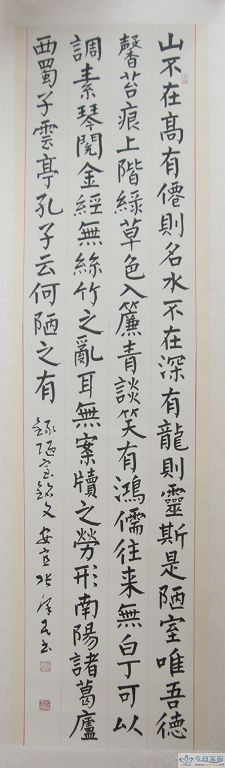 山不在高有僊則名水不在深有龍則靈斯是陋室唯吾德
馨苔痕上階綠草色入簾青談笑有鴻儒往来無白丁可以
調素琴閱金經無絲竹之亂耳無案牘之勞形南陽諸葛廬
西蜀子雲亭孔子云何陋之有
錄陋室銘文安宜张民书
今日宝应